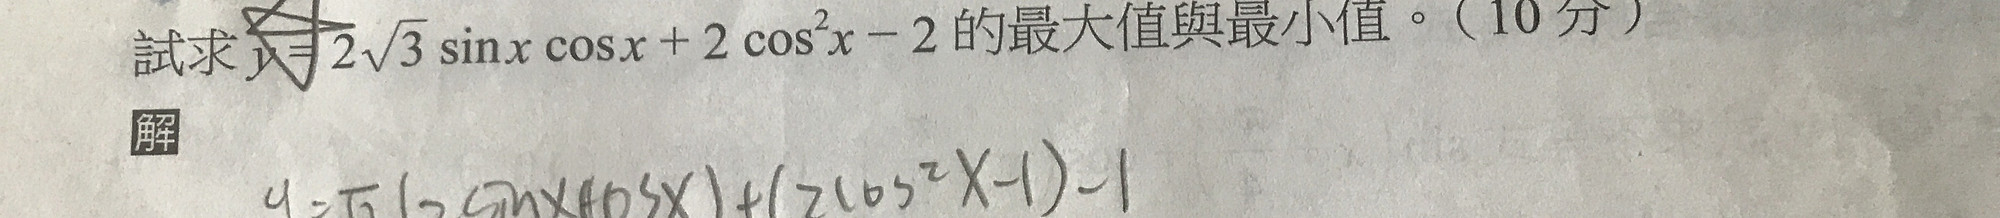 試求 y = 2√3 sinx cosx + 2 cos²x − 2 的最大值與最小值。（10 分）
解
y=√3(2sinxcosx)+(2cos²x-1)-1